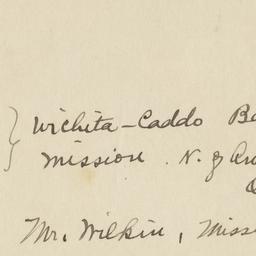 Wichita-Caddo Ba
Mission. N. of An
Mr. Wilkin, Miss